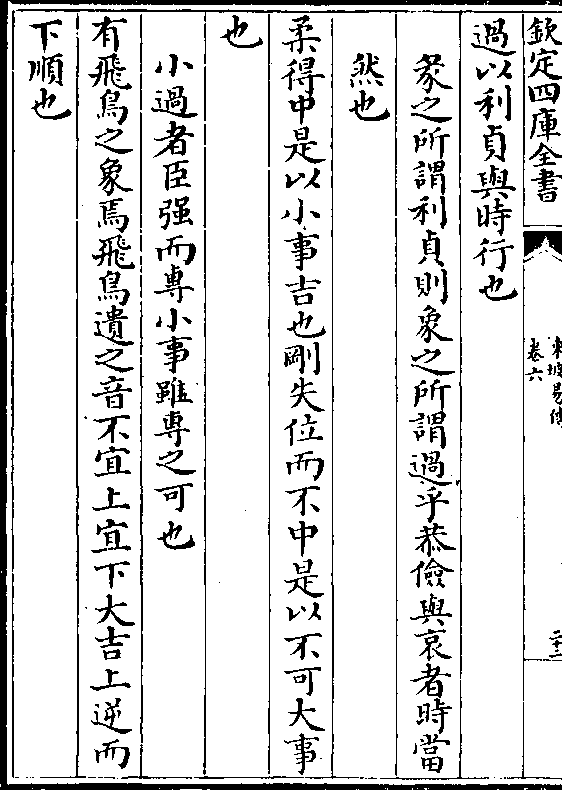 欽定四庫全書
東坡易傳
卷六
二十二
過以利貞與時行也
彖之所謂利貞則象之所謂過乎恭儉與哀者時當
然也
柔得中是以小事吉也剛失位而不中是以不可大事
也
小過者臣强而專小事雖專之可也
有飛鳥之象焉飛鳥遺之音不宜上宜下大吉上逆而
下順也